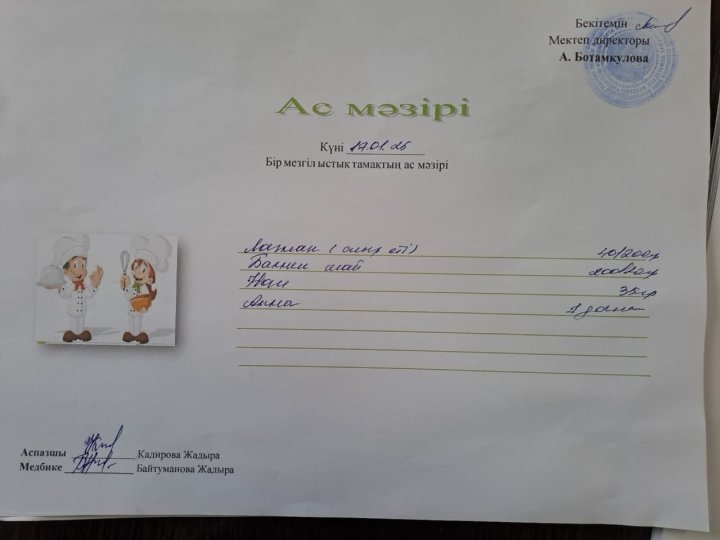 Бекітемін
Мектеп директоры
А. Ботамкулова
Ас мәзірі
Күні 17.01.25
Бір мезгіл ыстық тамақтың ас мәзірі
Лагман (сиыр еті) 40/200гр
Балмен шай 200/10гр
Нан 35гр
Алма 1 дана
Аспазшы Кадирова Жадыра
Медбике Байтуманова Жадыра